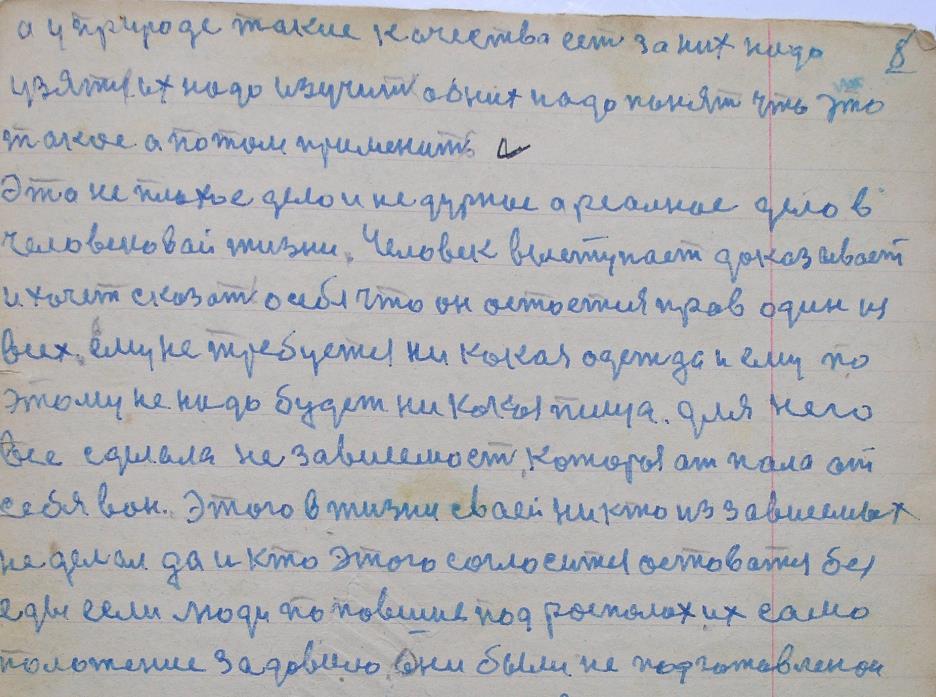 8
а у природе такие качества ест за них надо
узяти их надо изучить об них надо понят что это
такое а потом применить
Это не плохое дело и не дурное а реалное дело в
человековай жизни. Человек выступает доказывает
и хочет сказать о себя что он остается прав один из
всех. ему не требуется ни какая одежда и ему по
этому не надо будет ни какая пища. для него
все сделала не зависемост, которыя атпала от
себя вон. Этого в жизни сваей ни кто из зависемых
не делал да и кто этого согласится оставатся без
еды если люди по павшие под располох их само
положение задовило они были не подготавленои